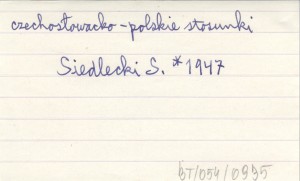 czechosłowacko-polskie stosunki
Siedlecki S. *1947
BT/054/0995